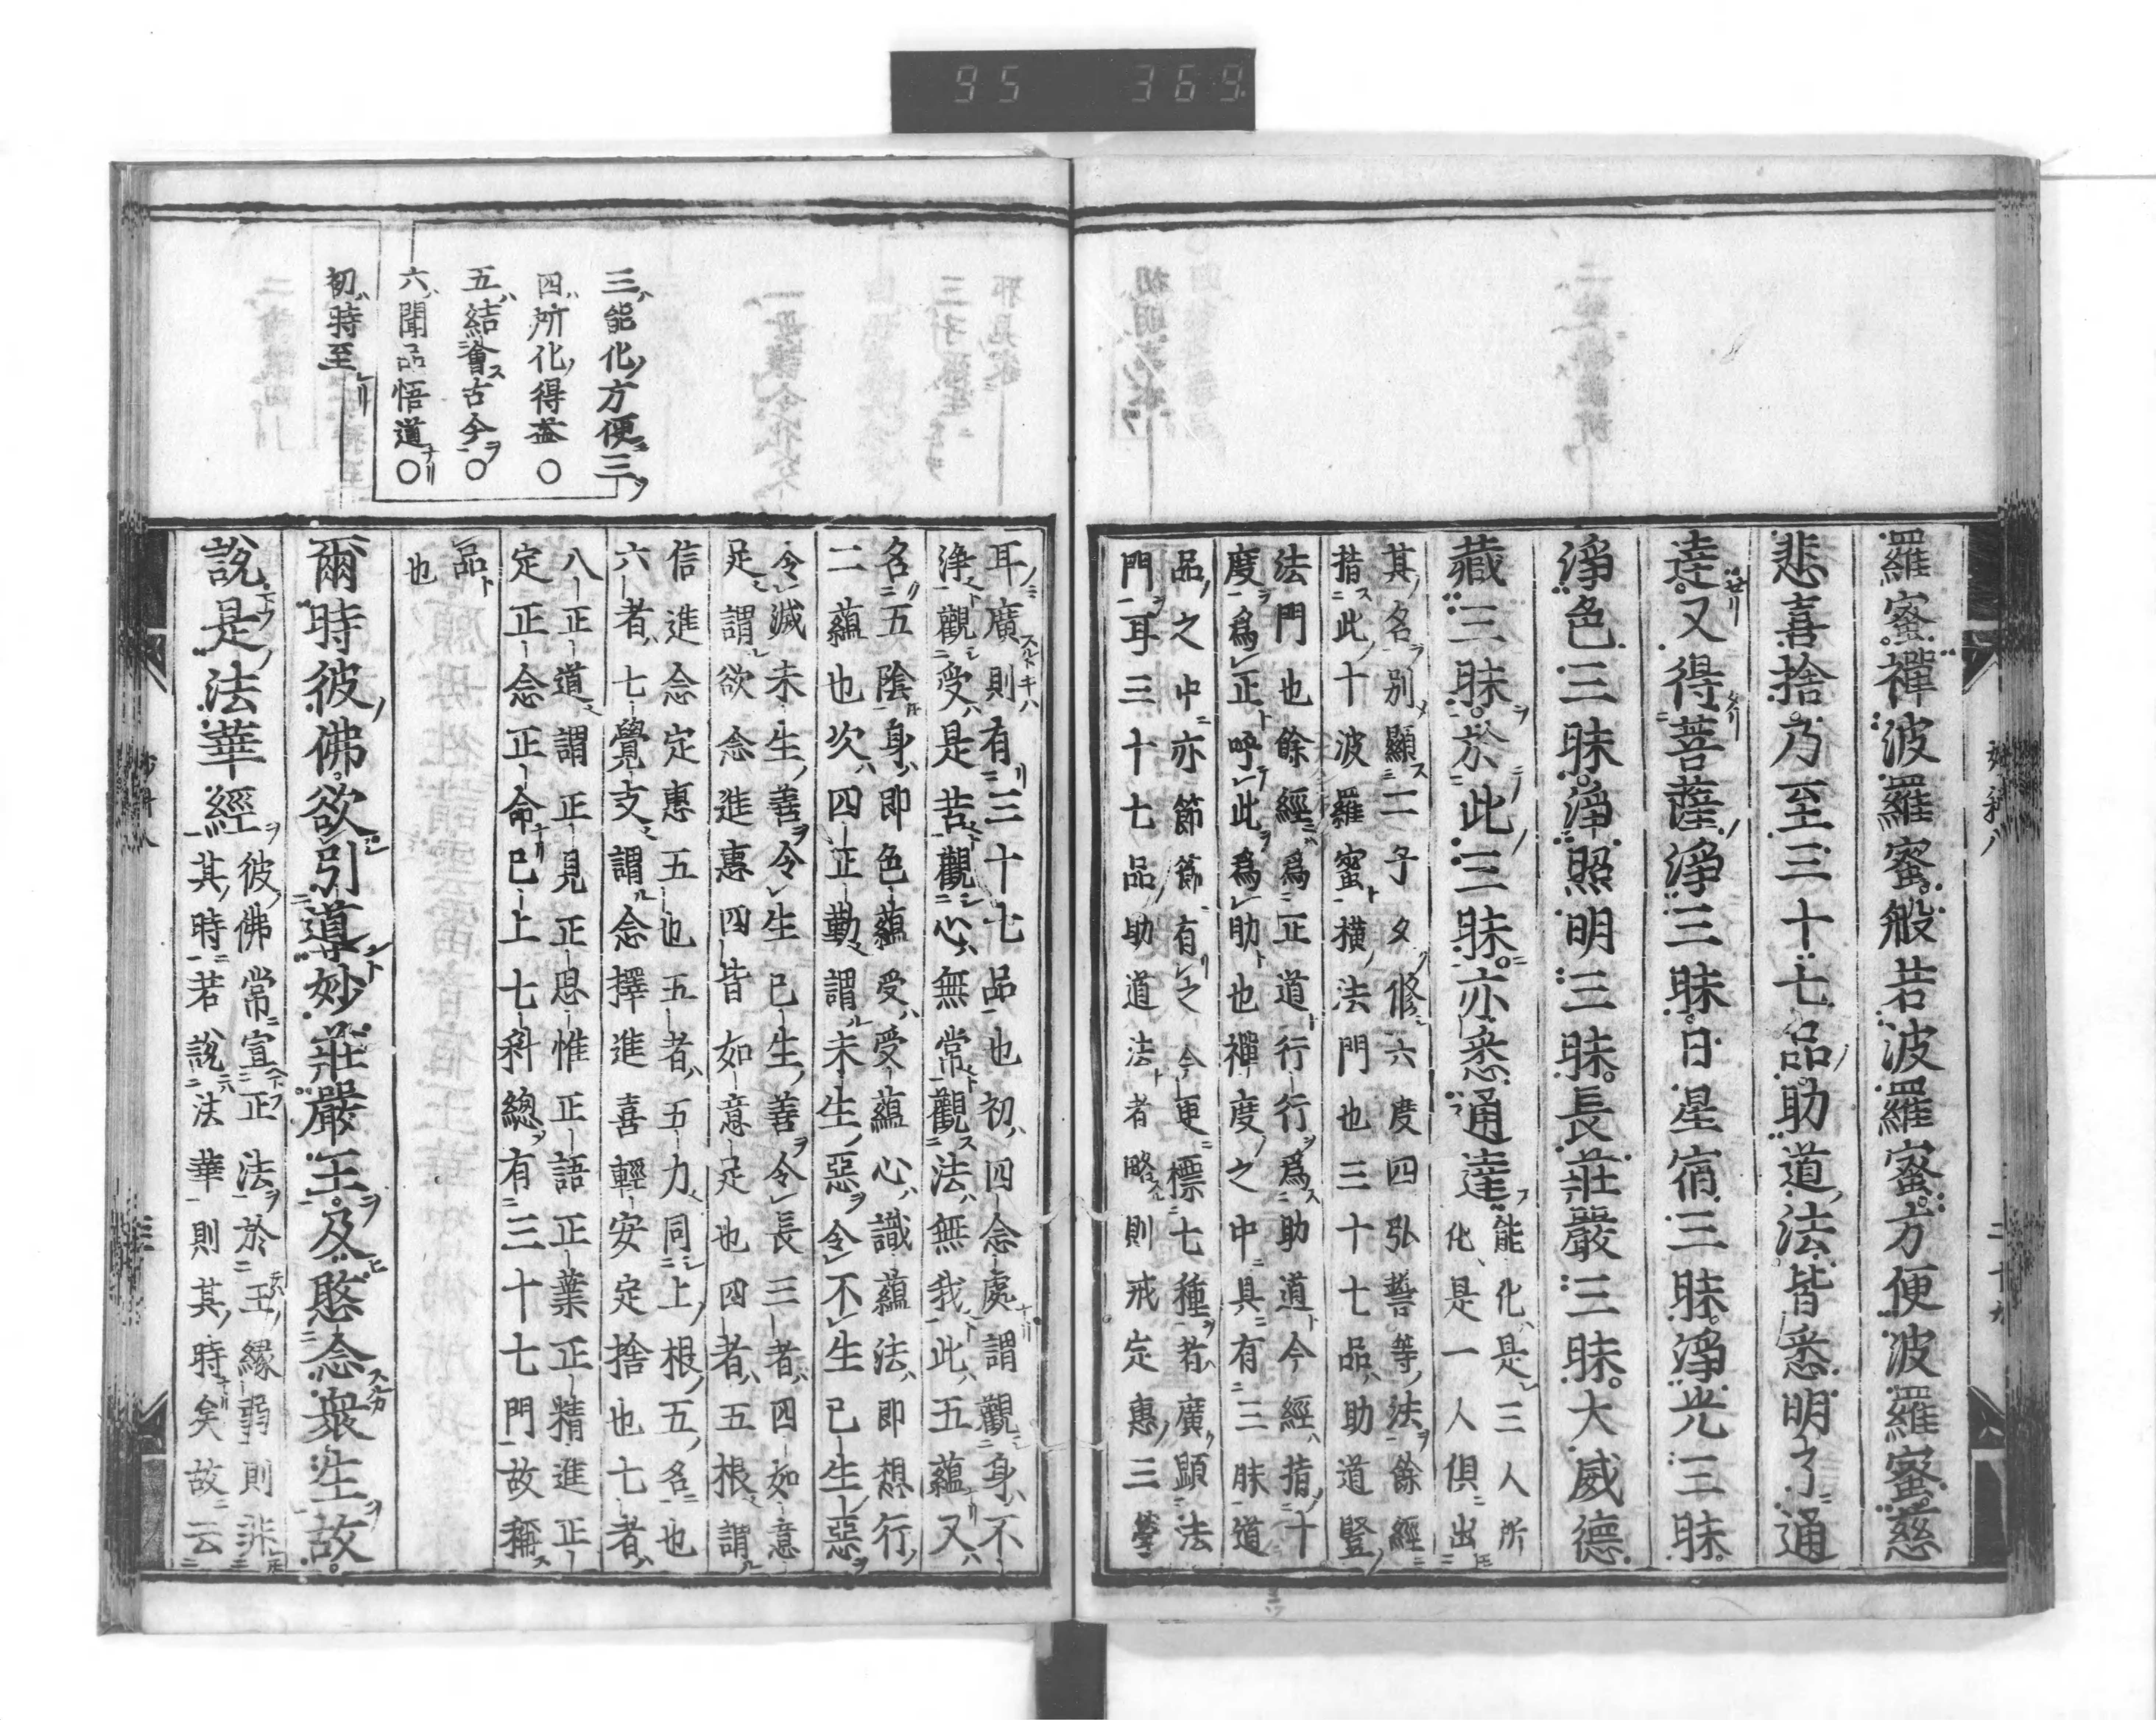 95 369
羅蜜禪波羅蜜般若波羅蜜方便波羅蜜慈
悲喜捨乃至三十七品助道法皆悉明了通
達又得菩薩淨三昧日星宿三昧淨光三昧
淨色三昧淨照明三昧長莊嚴三昧大威德
藏三昧於此三昧亦悉通達
能化是三人所
化是一人俱出
其名別顯二子夕修六度四弘誓等法餘經
指此十波羅蜜橫法門也三十七品助道豎
法門也餘經爲正道行行爲助道今經指十
度爲正呼此爲助也禪度之中具有三昧道
品之中亦節節有之今更標七種者廣顕法
門耳三十七品助道法者略則戒定惠三學
三能化方便三
四所化得益○
五結會古今○
六聞品悟道○
初時至
耳廣則有三十七品也初四念處謂觀身不
淨觀受是苦觀心無常觀法無我此五蘊又
名五陰身即色蘊受受蘊心識蘊法即想行
二蘊也次四正勤謂未生惡令不生已生惡
令滅未生善令生已生善令長三者四如意
足謂欲念進惠四皆如意足也四者五根謂
信進念定惠五也五者五力同上根五名也
六者七覺支謂念擇進喜輕安定捨也七者
八正道謂正見正思惟正語正業正精進正
定正念正命已上七科總有三十七門故稱
品
也
爾時彼佛欲引導妙莊嚴王及愍念衆生故
說是法華經
彼佛常宣正法於王緣弱則非
其時若說法華則其時矣故云